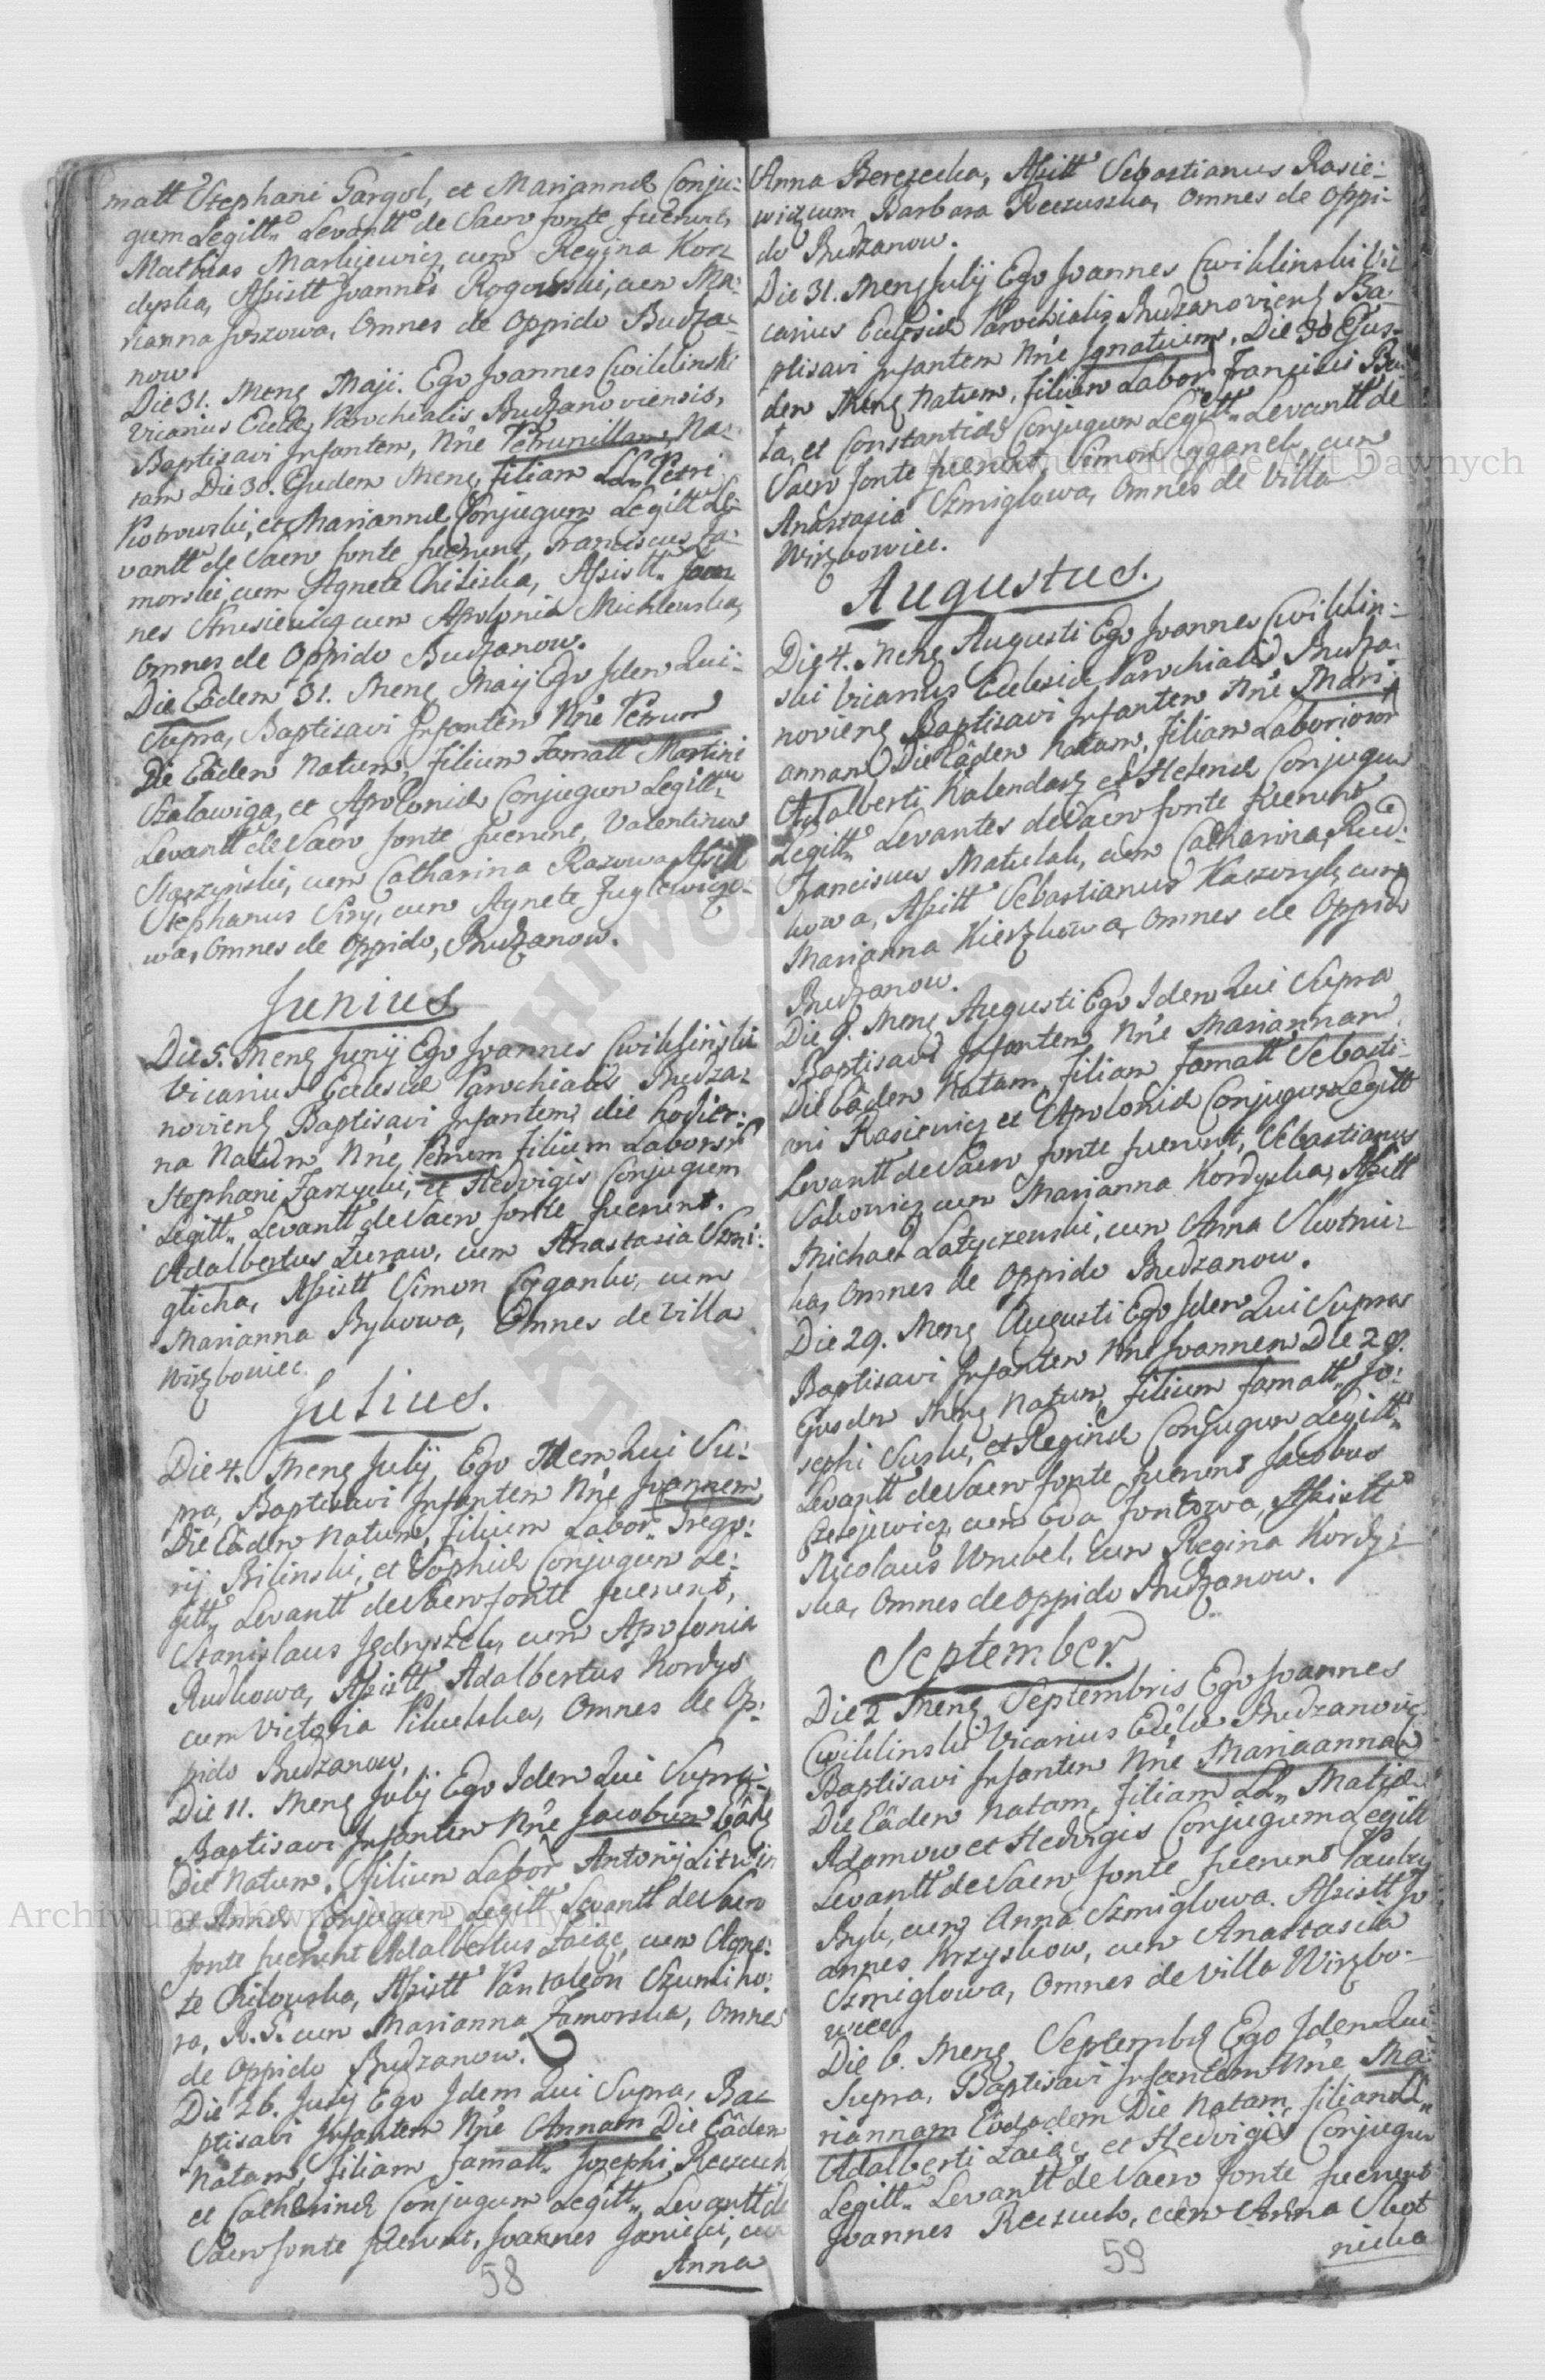 matt Stephani Gargol, et Mariannæ Conju:
gum Legitt. Levantt de Sacro fonte fuerunt,
Mathias Markiewicz cum Regina Kor:
dyska, Assistt Joannes Rogowski, cum Ma:
rianna Juszowa, Omnes de Oppido Budza:
now.
Die 31. Mens Maji. Ego Joannes Cwiklinski
Vicarius Eccle Parochialis Budzanoviensis,
Baptisavi Infantem, Nne Petrunillam, Na:
tam Die 30. Ejudem Mens, filiam LL. Petri
Piotrowski, et Mariannæ Conjugum Legitt Le:
vantt de Sacro fonte fuerunt, Franciscus Za:
morski, cum Agnete Chiliska, Assistt. Joan:
nes Krusiewicz cum Apolonia Michlewska,
Omnes de Oppido Budzanow.
Die Eâdem 31. Mens Maij Ego Idem Qui
Supra, Baptisavi Infantem Nne Petrum
Die Eâdem Natum, filium Famatt Martini
Szaławiga, et Apoloniæ Conjugum Legitt.
Levantt de Sacro fonte fuerunt, Valentinus
Starzyński, cum Catharina Razowa Assistt
Stephanus Siry, cum Agnete Fuglewiczo:
wa, Omnes de Oppido, Budzanow.
Junius
Die 5. Mens Junij Ego Joannes Cwikliński
Vicarius Ecclesiæ Parochialis Budza:
noviens Baptisavi Infantem, die hodier:
na Natum Nne, Petrum filium Laborsi
Stephani Zarzycki, et Hedvigis Conjugum
Legitt. Levantt de Sacro fonte fuerunt.
Adalbertus Zuraw, cum Anastasia Szmi:
glicha, Assistt Simon Cyganko, cum
Marianna Bykowa, Omnes de Villa
Wirzbowiec.
Julius.
Die 4. Mens Julij, Ego Idem Qui Su:
pra, Baptisavi Infantem Nne Joannem,
Die Eâdem Natum, filium Labor. Grego:
rij Bilinski, et Sophiæ Conjugum Le:
gitt. Levantt de Sacro fonte fuerunt,
Stanislaus Jędryszek, cum Apolonia
Rudkowa, Assistt Adalbertus Kordys
cum Victoria Pikulska, Omnes de Op:
pido Budzanow,
Die 11. Mens Julij Ego Idem Qui Supra:
Baptisavi Infantem Nne Jacobum Eâdem
Die Natum. filium Labor Antonij Litwin
et Annæ Conjugum Legitt Levantt de Sacro
fonte fuerunt Adalbertus Zaiąc, cum Agne:
te Chilowska, Assistt Pantaleon Szumiho:
ra, R. G. cum Marianna Zamorska, Omnes
de Oppido Budzanow.
Die 26. Julij Ego Idem Qui Supra, Ba:
ptisavi Infantem Nne Annam Die Eâdem
Natam, filiam Famatt. Josephi Reczuch
et Catharinæ Conjugum Legitt. Levantt de
Sacro fonte fuerunt, Joannes Janicki, cum
Anna
58
Anna Berezecka, Assistt Sebastianus Rasie:
wicz cum Barbara Reczuszka, Omnes de Oppi:
do Budzanow.
Die 31. Mens Julij Ego Joannes Cwiklinski Vi:
carius Ecclesiæ Parochialis Budzanoviens Ba:
ptisavi Infantem Nne Ignatium, Die 30 Ejus:
dem Mens Natum, filium Labor Francisci
ta, et Constantiæ Conjugum Legitt. Levantt de
Sacro fonte fuerunt, Simon Cyganek, cum
Anastasia Szmiglowa, Omnes de Villa
Wirzbowiec.
Augustus.
Die 4. Mens Augusti Ego Joannes Cwiklin:
ski Vicarius Ecclesiæ Parochialis Budza:
noviens Baptisavi Infantem Nne Mari:
annam Die Eâdem Natam, filiam Laborioso
Adalberti Kalendarz et Helenæ Conjugum
Legitt. Levantes de Sacro fonte fuerunt
Franciscus Matulak, cum Catharina Rud:
kowa, Assistt Sebastianus Kaczoryk, cum
Marianna Kierzkowa, Omnes de Oppido
Budzanow.
Die 9. Mens Augusti Ego Idem Qui Supra
Baptisavi Infantem Nne Mariannam
Die Eâdem Natam, filiam Famatt Sebasti:
ani Rasiewicz et Apoloniæ Conjugum Legitt
Levantt de Sacro fonte fuerunt, Sebastianus
Sakowicz cum Marianna Kordyska, Assistt
Michael Latyczewski, cum Anna Skotnic:
ka, Omnes de Oppido Budzanow.
Die 29. Mens Augusti Ego Idem Qui Supra
Baptisavi Infantem Nne Joannem Die 29.
Ejusdem Mens Natum, filium Famatt. Jo:
sephi Suski, et Reginæ Conjugum Legitt.
Levantt de Sacro fonte fuerunt Jacobus
Czesejewicz, cum Eva Jontowa, Assistt
Nicolaus Wrubel, cum Regina Kordy:
ska, Omnes de Oppido Budzanow.
September.
Die 2 Mens Septembris Ego Joannes
Cwiklinski Vicarius Eccle Budzanovi
Baptisavi Infantem Nne Mariaannam
Die Eâdem Natam, filiam LL. Matiæ
Adamow et Hedvigis Conjugum Legitt
Levantt de Sacro fonte fuerunt Paulus
Byk, cum Anna Szmiglowa. Assistt Jo
annes Krzyskow, cum Anastasia
Szmiglowa, Omnes de Villa Wirzbo:
wiec
Die 6. Mens Septembr Ego Idem Qui
Supra, Baptisavi Infantem Nne Ma:
riannam Eodadem Die Natam, filiam LL.
Adalberti Zaiąc, et Hedvigis Conjugum
Legitt. Levantt de Sacro fonte fuerunt
Joannes Reczuch, cum Anna Skot
nicka
59
Archiwum Główne Akt Dawnych
Archiwum Główne Akt Dawnych